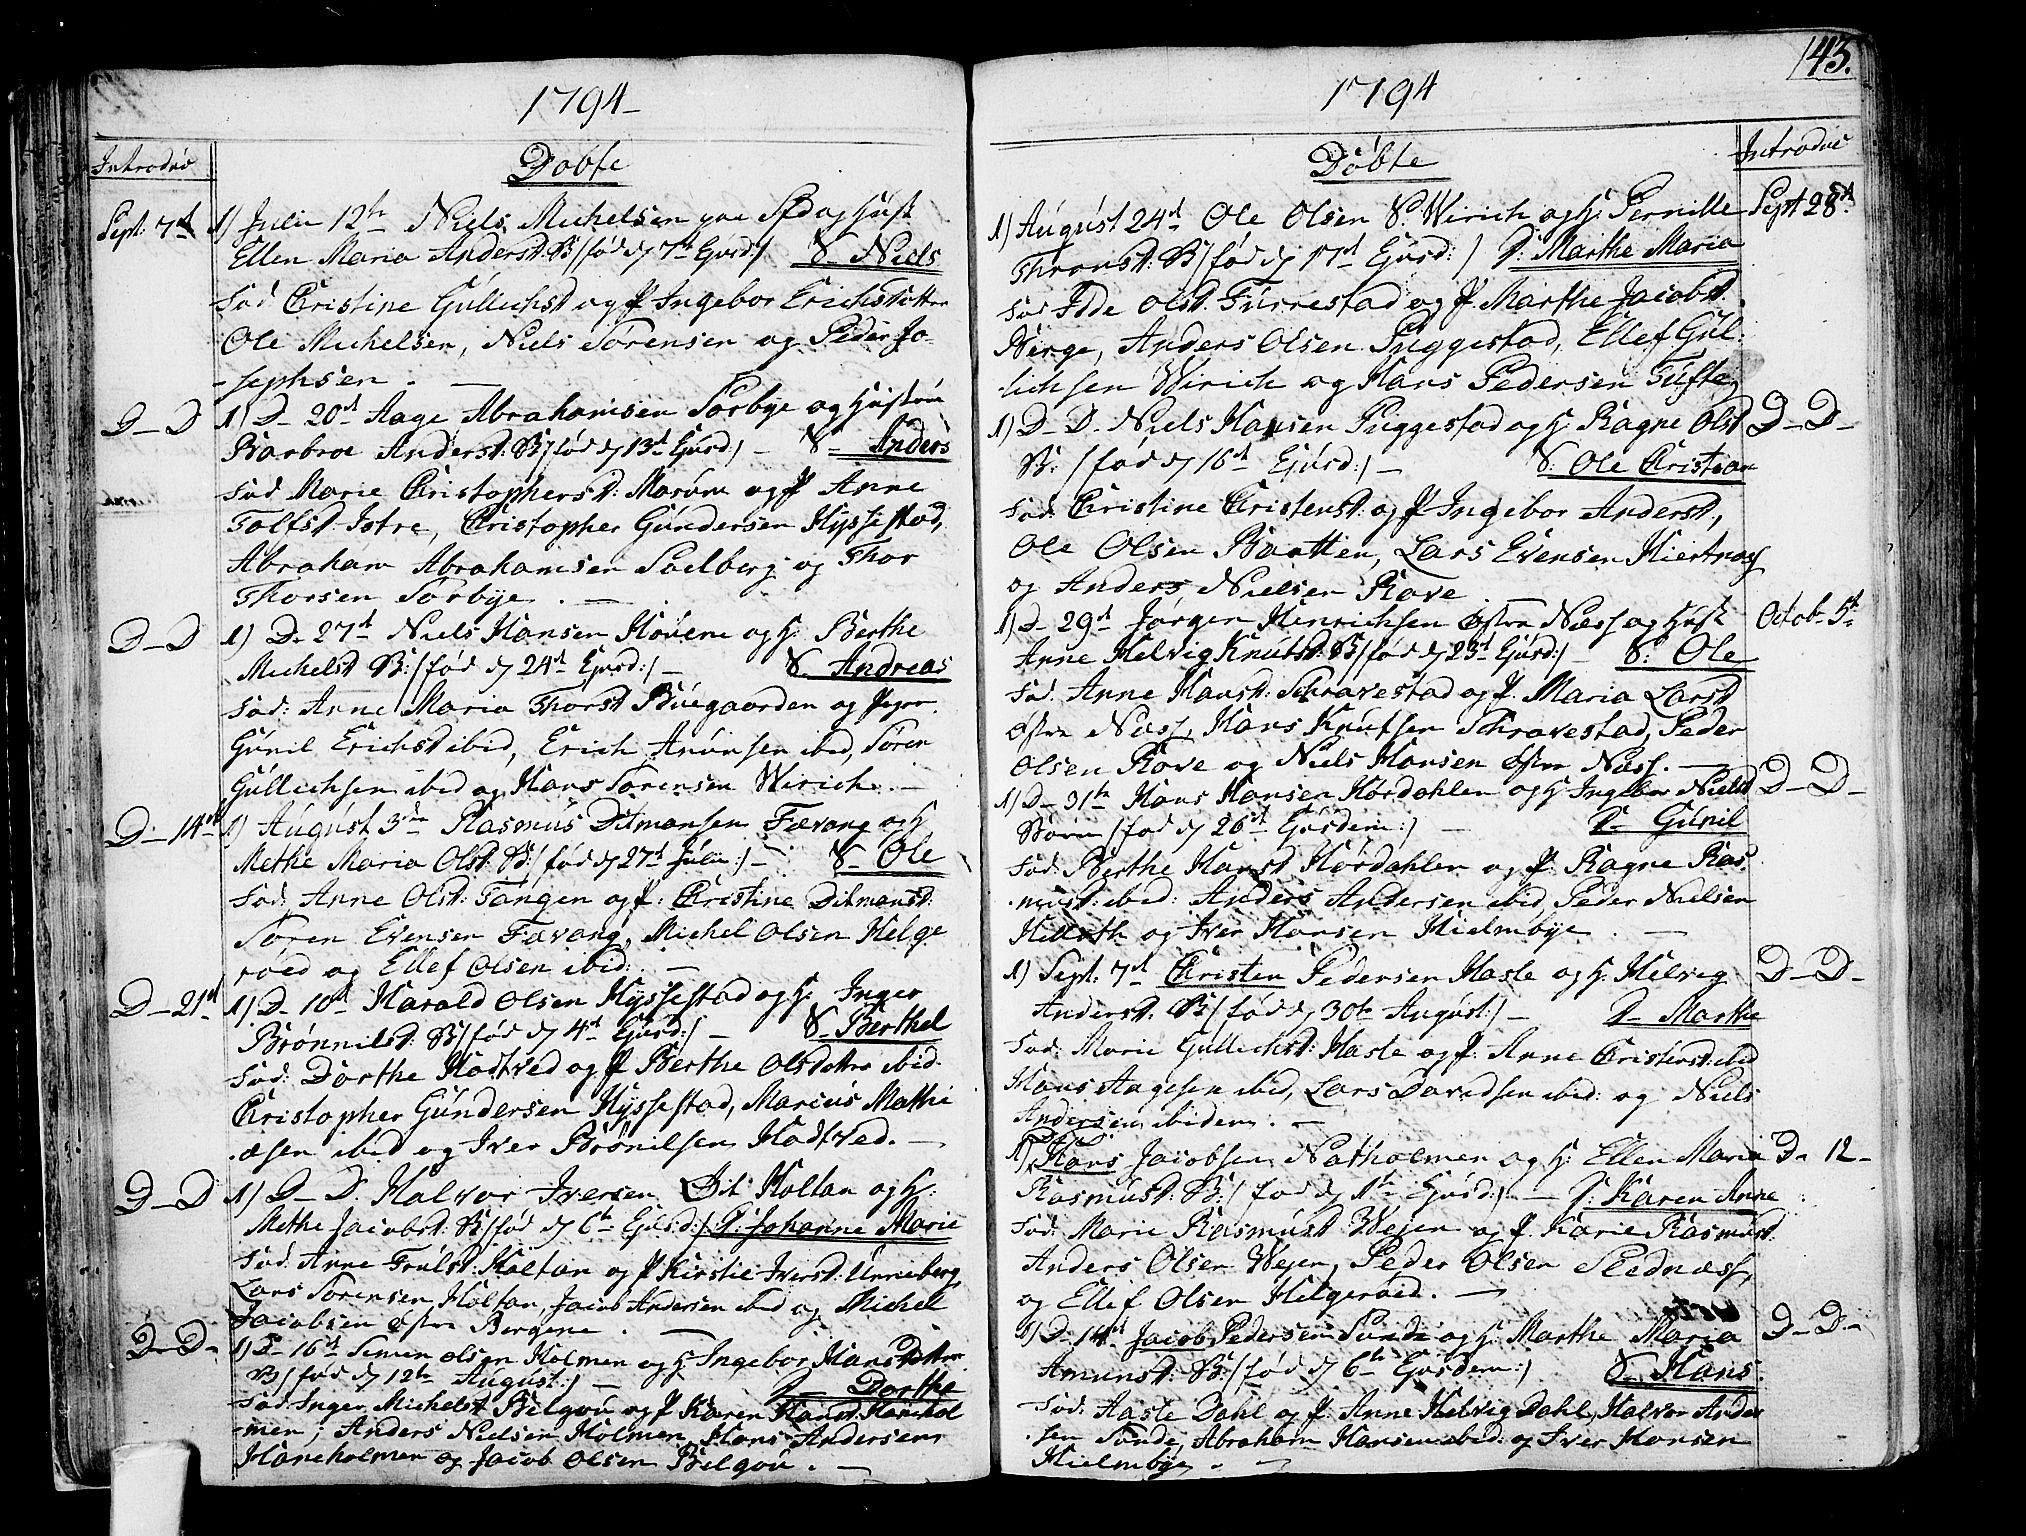 1794
Introduc
Døbte
Sept. 7d 1) Julii 12te Niels Michelsen paa Sted og Hust
Ellen Maria Anderst: B/ fød d 7d Ejusd:/ S. Niels
Fad. Christine Gullichsd og P. Ingebor Erichsdottre
Ole Michelsen, Niels Sørensen og Peder Jo-
-sephsen.
D-D 1) D- 20d Aage Abrahamsen Torbye og Hustru
Barbroe Anderst: B/ fød d 13d Ejusd:/ - S- Anders
Fad. Marie Christopherst: og P. Anne
Tolfsd. Istre, Christopher Gundersen Hyssestad,
Abraham Abrahamsen Soelberg og Thor
Thorsen Torbye.
D-D 1) D. 27d Niels Hansen Hovene og H. Berthe
Michelst B:/ fød d 24d Ejusd:/ - S. Andreas
Fad: Anne Maria Thorsd Bóegaarden og Pigen
Gunil Erichsd ibid, Erich Anunsen ibid, Søren
Gullichsen ibid og Hans Sørensen Wirich. -
D- 14de 1) August 3die Rasmus Ditmansen Færang og H
Methe Maria Olst. B:/ fød d 27d Julii:/ - S- Ole
Fad. Anne Olst: Tangen og P: Christine Ditmanst:
Søren Evensen Færang, Michel Olsen Helge
røed og Ellef Olsen ibid:
D-21d 1) D- 10d Harald Olsen Hyssestad og H. Inger
Brønnilst: B/ fød d 4d Ejusd:/ - S- Berthel
Fad: Dorthe Hodtved og P Berthe Olsdottre ibid.
Christopher Gundersen Hyssestad, Marcus Mathi
.æsen ibid og Iver Brønilsen Hodtved. -
D-D 1) D-D. Halvor Iversen Holtan og H.
Methe Jacobst. B/ fød d 6te Ejusd:/ P. Johanne Marie
Fad. Anne Trulst: Holtan og P Kirstie Iverst: Unneberg
Lars Sørensen Holtan, Jacob Andersen ibid og Michel
Jacobsen østre Bergene.
D-D- 1) D- 16d Simen Olsen Holmen og H Ingebor Hansdotter
B/ fød d 12te August:/ - P- Dorthe
Fad. Inger Michelst Belgou og P Karen Hansd. Hanehol
-men; Anders Nielsen Holmen, Hans Andersen
Haneholmen og Jacob Olsen Belgou. -
143.
1794
Døbte
Introduc
1) August 24d Ole Olsen S. Wirich og H. Pernille Sept 28d
Thronst: B/ fød d 17d Ejusd:/ P: Marthe Maria
Fad. Olst. Furrestad og P. Marthe Jacobst.
Berge, Anders Olsen Puggestad, Ellef Gul-
-lichsen Wirich og Hans Pedersen Tufte.
1) D-D. Niels Hansen Puggestad og H. Ragne Olst D-D-
B: / fød d 16d Ejusd:/ - S: Ole Christian
Fad. Christine Christenst: og P Ingebor Anderst,
Ole Olsen Braatten, Lars Evensen Hiertnæs
og Anders Nielsen Rove.
1) D- 29d Jørgen Hinrichsen østre Næss og Hust Octob. 5te
Anne Helvig Knutst: B/ fød d 23d Ejusd:/ S: Ole
Fad. Anne Hanst: Schravestad og P. Maria Larst
østre Næss, Hans Knutsen Schravestad, Peder
Olsen Rove og Niels Hansen østre Næss. -
1) D- 31te Hans Hansen Hørdahlen og H Ingebor Nielsd D-D-
Børn / fød d 26d Ejusdem:/ - P- Gunil
Fad. Berthe Hansd Hørdahlen og P. Ragne Ras
-must: ibid: Anders Andersen ibid, Peder Nielsen
og Iver Hansen Hielmbye. -
1) Sept. 7d Christen Pedersen Hasle og H. Helvig D-D-
Anderst. B/ fød d 30te August:/ - P- Marthe
Fad: Marie Gullichst: Hasle og P. Anne Christenst: ibid
Hans Aagesen ibid, Lars Davidsen ibid: og Niels
Andersen ibidem. -
1) Hans Jacobsen Natholmen og H. Ellen Maria D- 12-
Rasmust: B:/ fød d 1te Ejusd:/ - P: Karen Anne
Fad: Marie Rasmusd Wejen og P. Karie Rasmust
Anders Olsen Wejen, Peder Olsen Stednæss,
og Ellef Olsen Helgerøed. -
1) D- 14d Jacob Pedersen Sunde og H. Marthe Maria D-D-
Amunst: B:/ fød d 6te Ejusdem:/ S- Hans
Fad: Aasle Dahl og P. Anne Helvig Dahl, Halvor Ander
-sen Sunde, Abraham Hansen ibid: og Iver Hansen
Hielmbye. -